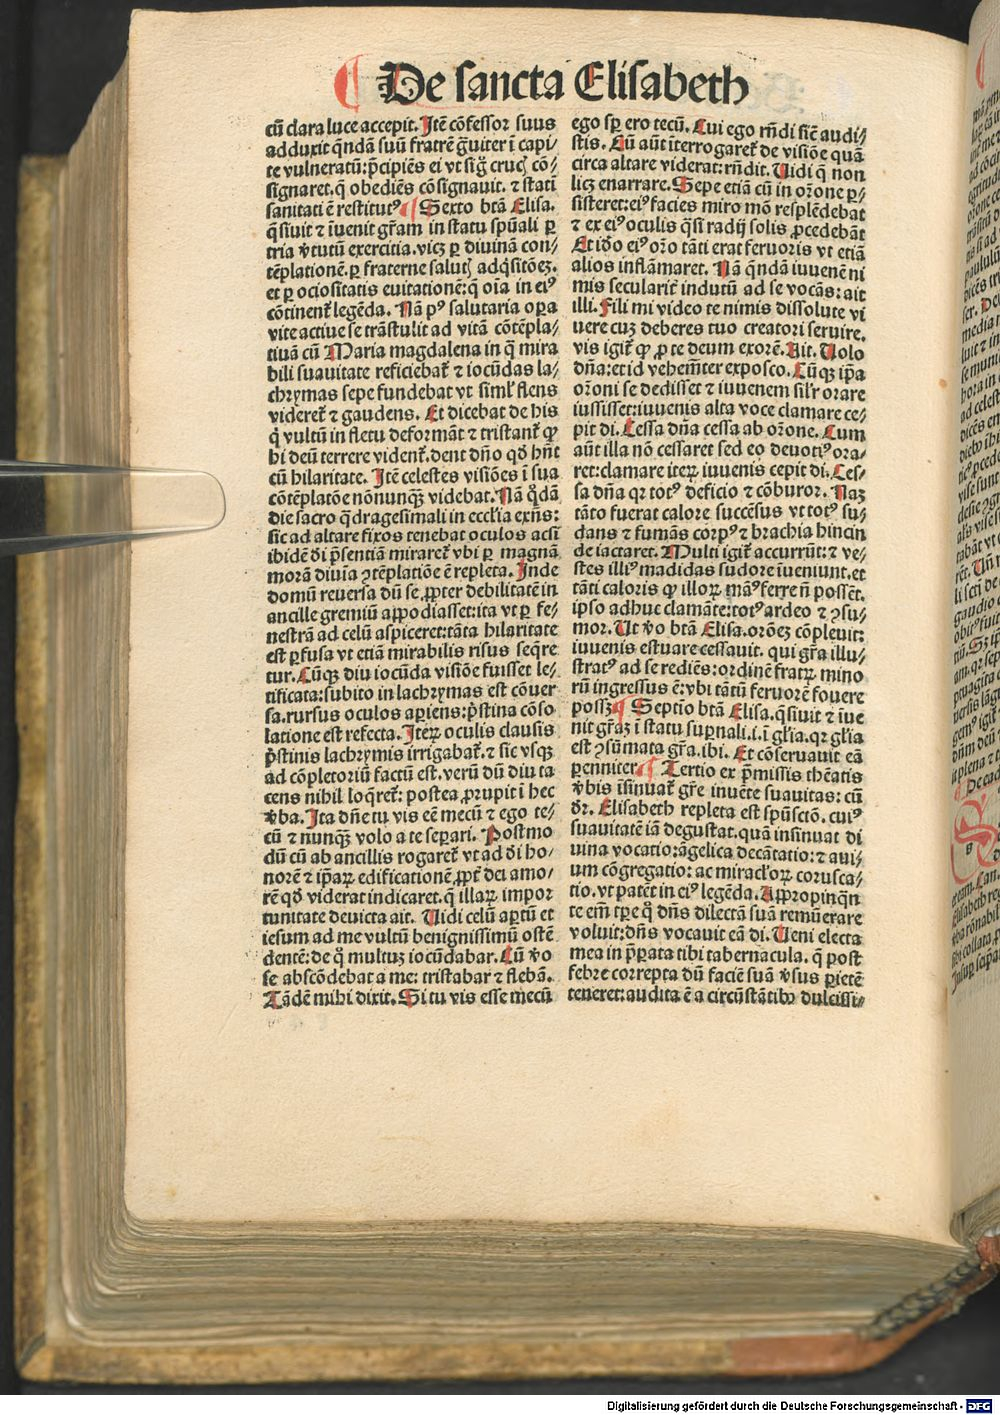 De sancta Elisabeth
cū clara luce accepit. Itē cōfessor suus
adduxit q̄ndā suū fratrē g̃uiter ī capi/
te vulneratū: p̄cipiēs ei vt sig̃ crucꝭ cō/
signaret. q̄ obediēs cōsignauit. ⁊ statī
sanitati ē restitutꝰ ¶ Sexto btā Elisa.
q̄siuit ⁊ īuenit gr̄am in statu spūali ꝑ
tria v̄tutū exercitia. vicꝫ ꝑ diuinā con/
tēplationē. ꝑ fraterne salutꝭ adq̄sitōeꝫ.
et ꝑ ociositatis euitationē: q̄ oīa in eiꝰ
cōtinent̄ legēda. Nā pꝰ salutaria oꝑa
vite actiue se trāstulit ad vitā cōtēpla/
tiuā cū Maria magdalena in q̄ mira
bili suauitate reficiebat̄ ⁊ iocūdas la/
chrymas sepe fundebat vt siml̄ flens
videret̄ ⁊ gaudens. Et dicebat de his
q̇ vultū in fletu deformāt ⁊ tristant̄ ꝙ
hi deū terrere vident̄. dent dn̄o qd̄ hn̄t
cū hilaritate. Itē celestes visiōes ī sua
cōtēplatōe nōnunqꝫ videbat. Nā q̇dā
die sacro q̄dragesimali in eccl̄ia exn̄s:
sic ad altare fixos tenebat oculos acsi
ibidē di p̄sentiā miraret̄ vbi ꝑ magnā
morā diuīa ꝯtēplatiōe ē repleta. Inde
domū reuersa dū se ꝓpter debilitatē in
ancille gremiū appodiasset: ita vt ꝑ fe/
nestrā ad celū aspiceret: tāta hilaritate
est ꝑfusa vt etiā mirabilis risus seq̄re
tur. Cūqꝫ diu iocūda visiōe fuisset le/
tificata: subito in lachrymas est cōuer
sa. rursus oculos aꝑiens: p̄stina cōso
latione est refecta. Iteꝝ oculis clausis
p̄stinis lachrymis irrigabat̄. ⁊ sic vsqꝫ
ad cōpletoriū factū est. verū dū diu ta
cens nihil loq̄ret̄: postea ꝓrupit ī hec
v̄ba. Ita dn̄e tu vis eē mecū ⁊ ego te/
cū ⁊ nunqꝫ volo a te seꝑari. Postmo
dū cū ab ancillis rogaret̄ vt ad di ho/
norē ⁊ ip̄aꝝ edificationē ꝓpt̄ dei amo/
rē qd̄ viderat indicaret. q̄ illaꝝ impor
tunitate deuicta ait. Uidi celū aꝑtū et
iesum ad me vultū benignissimū ostē
dentē: de q̊ multuꝫ iocūdabar. Cū v̄o
se abscōdebat a me: tristabar ⁊ flebā.
Tādē mihi dixit. Si tu vis esse mecū
ego sꝑ ero tecū. Cui ego rn̄di sic̄ audi/
stis. Cū aūt īterrogaret̄ de visiōe quā
circa altare viderat: rn̄dit. Uidi q̄ non
licꝫ enarrare. Sepe etiā cū in or̄one ꝑ/
sisteret: eiꝰ facies miro mō resplēdebat
⁊ ex eiꝰ oculis q̄si radij solis ꝓcedebāt
Et iō eiꝰ or̄o tāti erat feruoris vt etiā
alios inflāmaret. Nā q̄ndā iuuenē ni
mis seculariť indutū ad se vocās: ait
illi. Fili mi video te nimis dissolute vi
uere cuꝫ deberes tuo creatori seruire.
vis igit̄ ꝙ ꝓ te deum exorē. Ait. Uolo
dn̄a: et id vehemn̄ter exposco. Cūqꝫ ip̄a
or̄oni se dedisset ⁊ iuuenem silr̄ orare
iussisset: iuuenis alta voce clamare ce/
pit di. Cessa dn̄a cessa ab or̄one. Cum
aūt illa nō cessaret sed eo deuotiꝰ ora/
ret: clamare iteꝝ iuuenis cepit di. Ces/
sa dn̄a qꝛ totꝰ deficio ⁊ cōburor. Naꝫ
tāto fuerat calore succēsus vt totꝰ su/
dans ⁊ fumās corpꝰ ⁊ brachia hincin
de iactaret. Multi igit̄ accurrūt: ⁊ ve/
stes illiꝰ madidas sudore īueniunt. et
tāti caloris ꝙ illoꝝ māꝰ ferre n̄ possēt.
ipso adhuc clamāte: totꝰ ardeo ⁊ ꝯsu/
mor. Ut v̄o btā Elisa. orōeꝫ cōpleuit:
iuuenis estuare cessauit. qui gr̄a illu/
stratꝰ ad se rediēs: ordinē fratꝝ mino
rū ingressus ē: vbi tātū feruorē fouere
possꝫ ¶ Septio btā Elisa. q̄siuit ⁊ īue
nit gr̄aꝫ ī statu suꝑnali. i. ī gl̄ia. qꝛ gl̄ia
est ꝯsūmata gr̄a. ibi. Et cōseruauit eā
ꝑenniter ¶ Tertio ex p̄missis thēatis
v̄bis īsinuat̄ gr̄e inuēte suauitas: cū
dr̄. Elisabeth repleta est spūsctō. cuiꝰ
suauitatē iā degustat. quā insinuat di
uina vocatio: āgelica decātatio: ⁊ aui/
um cōgregatio: ac miracl̄oꝝ corusca/
tio. vt patēt in eiꝰ legēda. Appropinqn̄
te em̄ tꝑe q̊ dn̄s dilectā suā remūerare
voluit: dn̄s vocauit eā di. Ueni electa
mea in p̄parata tibi tabernacula. q̄ post
febre correpta dū faciē suā v̄sus ꝑietē
teneret: audita ē a circūstātibꝰ dulcissi/
Digitalisierung gefördert durch die Deutsche Forschungsgemeinschaft - DFG